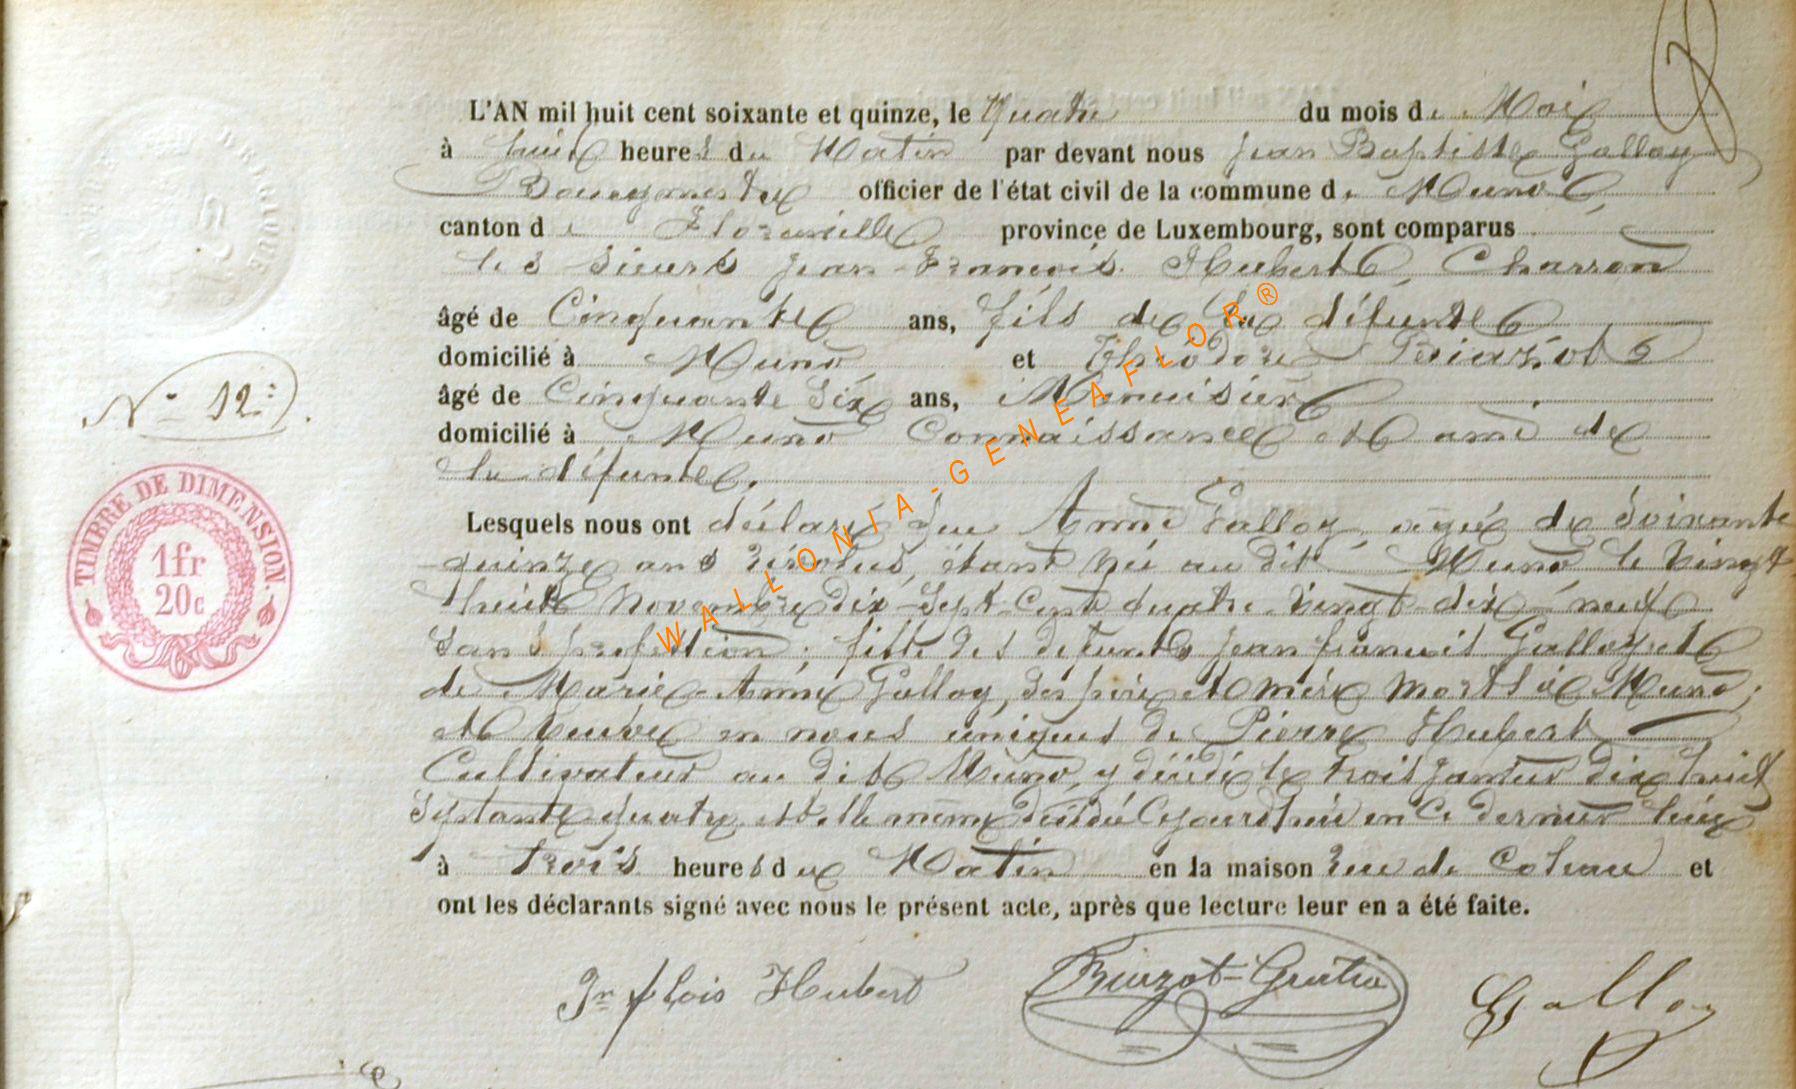 L'AN mil huit cent soixante et quinze, le Quatre du mois de Mai
à huit heures du Matin par devant nous Jean Baptiste Galloy
Bourgmestre officier de l'état civil de la commune de Muno
canton de Florenville province de Luxembourg, sont comparus
les Sieurs Jean-François Hubert, Charron
âgé de Cinquante ans, fils de la défunte
domicilié à Muno et Théodore
âgé de Cinquante Six ans, Menuisier
domicilié à Muno Connaissance et ami de
la défunte.
N° 12:
Lesquels nous ont déclaré que Anne Galloy, agée de Soixante
quinze ans révolus, étant née au dit Muno le vingt
huit Novembre dix-Sept-Cent quatre-vingt-dix-neuf
Sans profession; fille des defunts Jean françois Galloy et
de Marie-Anne Galloy, Ses père et mère morts à Muno;
et veuve en noces uniques de Pierre Hubert
Cultivateur au dit Muno, y décédé le trois janvier dix huit
Septante quatre et elle même décédée Cejourd'hui en Ce dernier lieu
à trois heures du Matin en la maison rue de Coteau et
ont les déclarants signé avec nous le présent acte, après que lecture leur en a été faite.
TIMBRE DE DIMENSION
1fr
20c
WALLONIA-GENEAFLOR®
Jn fçois Hubert
Galloy